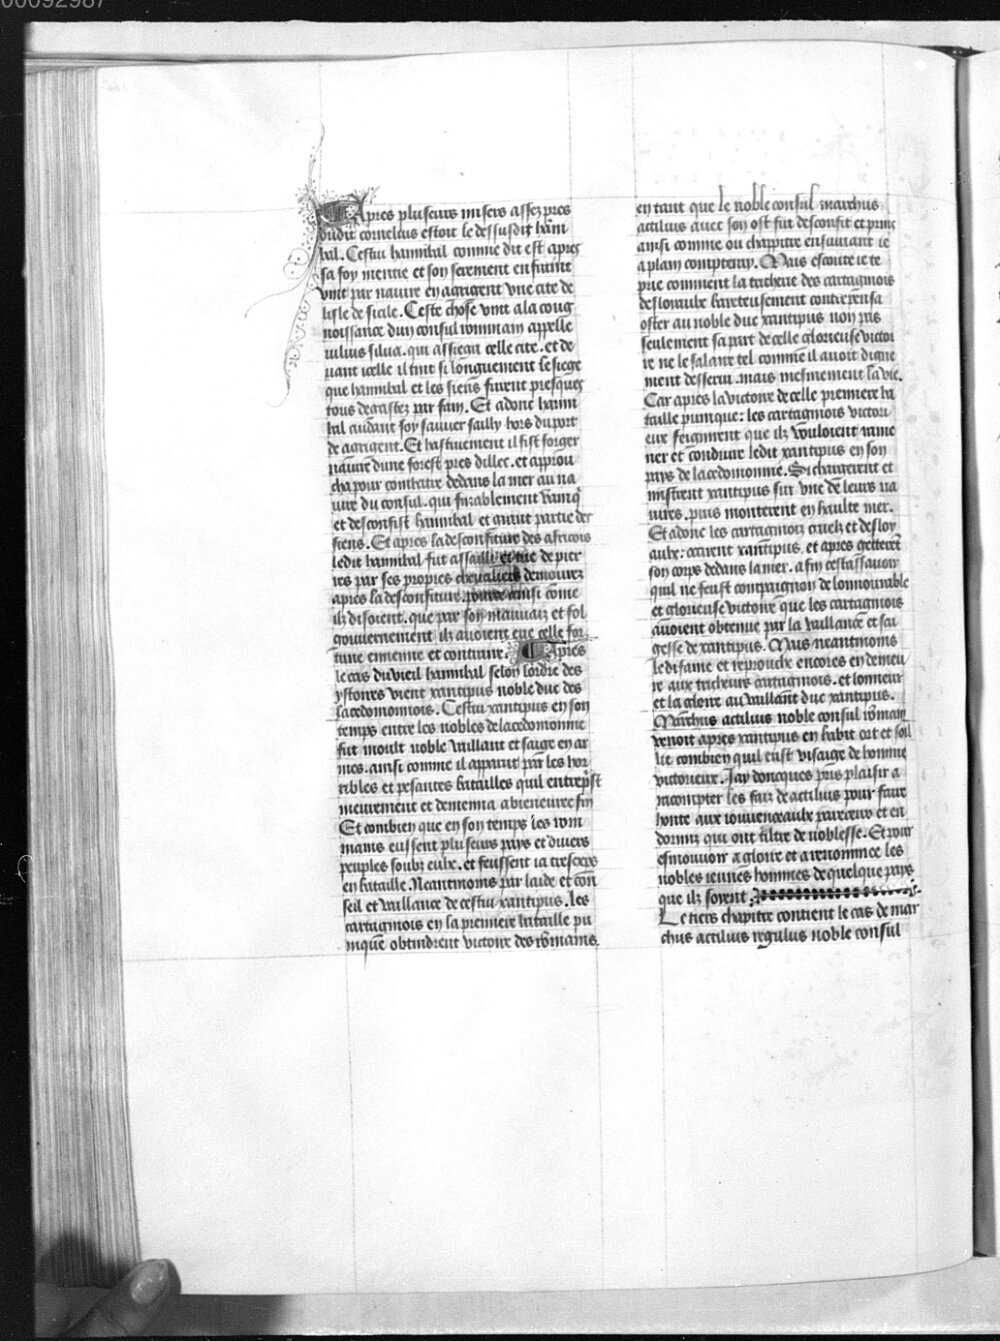 00092987
Apres pluseurs misers assez pres
dudit cornelius estoit le dessusdit hani
bal. Cestui hannibal comme dit est apres
sa foy mentie et son serement enfraint
vint par nauire en agrigent vne cite de
lisle de sicile. Ceste chose vint a la cong
noissance dun consul rommain appelle
iulius silua. qui assiega celle cite. et de
uant icelle il tint si longuement le siege
que hannibal et les siens furent presques
tous degastez par faim. Et adonc hanni
bal cuidant soy sauuer sailly hors du port
de agrigent. Et hastiuement il fist forger
nauire dune forest pres dillec. et approu
cha pour combatre dedans la mer au na
uire du consul. qui finablement vainq
et desconfist hannibal et grant partie des
siens. Et apres la desconfiture des africois
ledit hannibal fut assailli et tue de pier
res par ses propres cheualiers demourez
apres la desconfiture. pource ainsi come
ilz disoient. que par son mauuaiz et fol
gouuernement ilz auoient eue celle for
tune ennemie et contraire. Apres
le cas du vieil hannibal selon lordre des
ystoires vient xantipus noble duc des
lacedomonnois. Cestui xantipus en son
temps entre les nobles de lacedomonne
fut moult noble vaillant et saige en ar
mes. ainsi comme il apparut par les hor
ribles et pesantes batailles quil entreprist
meurement et demena a bieneuree fin
Et combien que en son temps les rom
mains eussent pluseurs pays et diuers
peuples soubz eulx. et feussent ia tresexps
en bataille. Neantmoins par laide et con
seil et vaillance de cestui xantipus. les
cartaginois en la premiere bataille pu
nique obtindrent victoire des rommains.
en tant que le noble consul marchus
actilius auec son ost fut desconfit et prins
ainsi comme ou chappitre ensuiuant ie
a plain compteray. Mais escoute ie te
prie comment la tricherie des cartaginois
desloyaulx barateusement contrepensa
oster au noble duc xantipus non pas
seulement sa part de celle glorieuse victoi
re ne le salaire tel comme il auoit digne
ment desserui. mais mesmement la vie.
Car apres la victoire de celle premiere ba
taille punique: les cartaginois victori
eux feignirent que ilz vouloient rame
ner et conduire ledit xantipus en son
pays de lacedomonne. Si chargerent et
mistrent xantipus sur vne de leurs na
uires. puis monterent en haulte mer.
Et adonc les cartaginois cruelz et desloy
aulx: occirent xantipus. et apres getterent
son corps dedans la mer. a fin cestassauoir
quil ne feust compaignon de lonnourable
et glorieuse victoire que les cartaginois
auoient obtenue par la vaillance et sai
gesse de xantipus. Mais neantmoins
le disfame et reprouche encores en demeu
re aux tricheurs cartaginois. et lonneur
et la gloire au vaillant duc xantipus.
Marchus actilius noble consul romain
venoit apres xantipus en habit ort et soil
lie combien quil eust visaige de homme
victorieux. Jay doncques pris plaisir a
racompter les faiz de actilius pour faire
honte aux iouuenceaulx pareceux et en
dormiz qui ont tiltre de noblesse. Et pour
esmouuoir a gloire et a renommee les
nobles ieunes hommes de quelque pays
que ilz soient.
Le tiers chapitre contient le cas de mar
chus actilius regulus noble consul